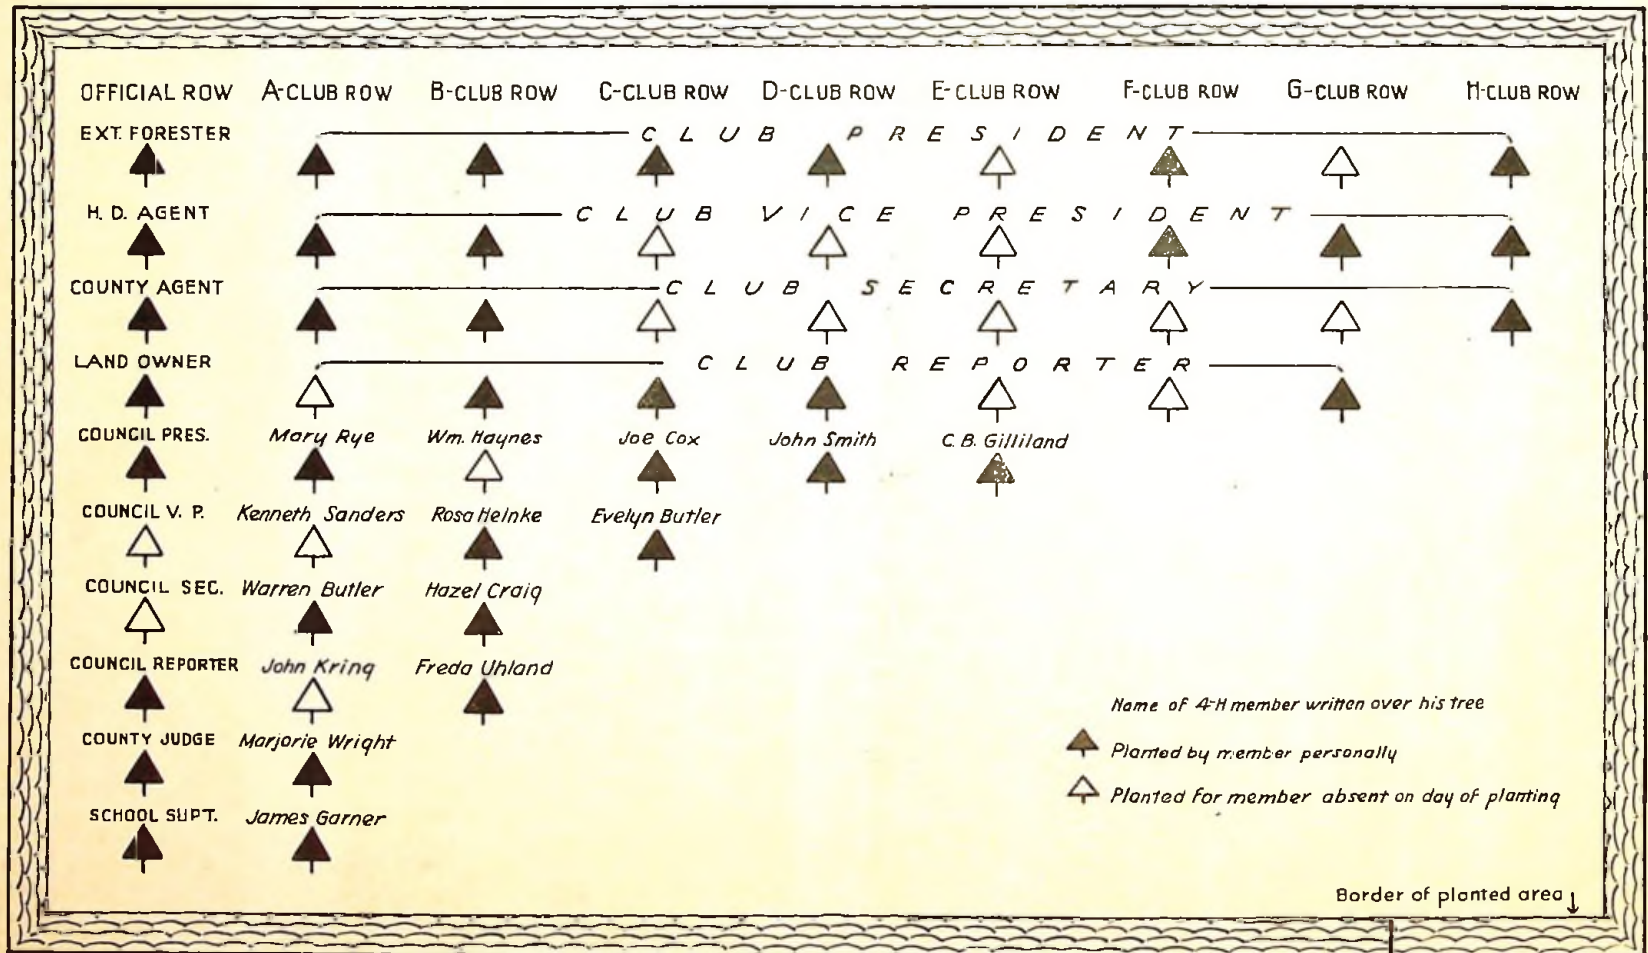 OFFICIAL ROW A-CLUB ROW B-CLUB ROW C-CLUB ROW D-CLUB ROW E-CLUB ROW F-CLUB ROW G-CLUB ROW H-CLUB ROW
EXT. FORESTER CLUB PRESIDENT
H. D. AGENT CLUB VICE PRESIDENT
COUNTY AGENT CLUB SECRETARY
LAND OWNER CLUB REPORTER
COUNCIL PRES. Mary Rye Wm. Haynes Joe Cox John Smith C. B. Gilliland
COUNCIL V. P. Kenneth Sanders Rosa Heinke Evelyn Butler
COUNCIL SEC. Warren Butler Hazel Craig
COUNCIL REPORTER John Kring Freda Uhland
COUNTY JUDGE Marjorie Wright
SCHOOL SUPT. James Garner
Name of 4-H member written over his tree
Planted by member personally
Planted for member absent on day of planting
Border of planted area